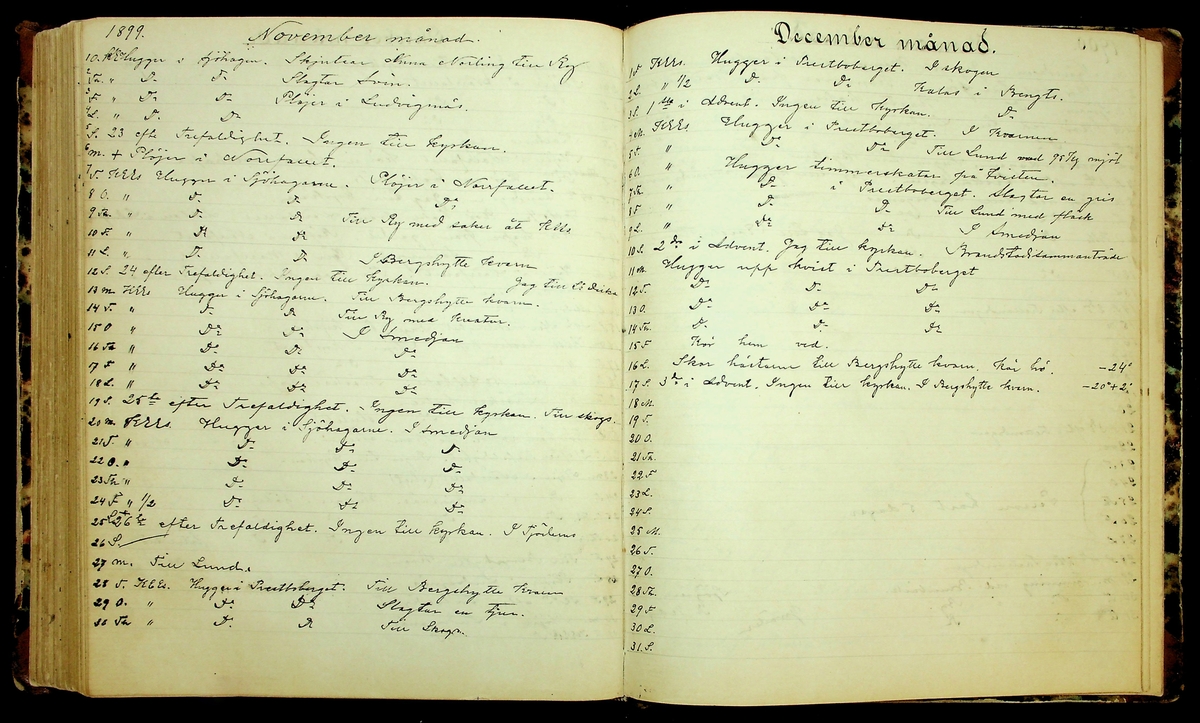 1899.
November månad.
1 O. KEEs Hugger i Sjöhagen. Skjutsar Anna Norling till Ry
2 Th. " Do Do Slagtar Svin.
3 F. " Do Do Plöjer i Ludvigmås.
4 L. " Do Do
5 S. 23 efte Trefaldighet. Ingen till kyrkan.
6 m. + Plöjer i Norrfallet.
7 T. KEEs Hugger i Sjöhagarne. Plöjer i Norrfallet.
8 O. " Do Do Do
9 Th. " Do Do Till Ry med saker åt KEEs
10 F. " Do Do
11 L. " Do Do I Bergshytte kvarn
12 S. 24 efter Trefaldighet. Ingen till kyrkan. Jag till
13 m KEEs Hugger i Sjöhagarne. Till Bergshytte kvarn.
14 T. " Do Do Till Ry med Kreatur.
15 O " Do Do I Smedjan
16 Th " Do Do Do
17 F " Do Do Do
18 L. " Do Do Do
19 S. 25te efter Trefaldighet. Ingen till kyrkan. Till skogs.
20 m. KEEs. Hugger i Sjöhagarne. I Smedjan
21 T. " Do Do Do
22 O. " Do Do Do
23 Th " Do Do Do
24 F " 1/2 Do Do Do
25 L +
26te efter Trefaldighet. Ingen till kyrkan. I Fjölens
26 S.
27 m. Till Lund.
28 T. KEEs. Hugger i Prestboberget. Till Bergshytte Kvarn
29 O. " Do Do Slagtar en tjur.
30 Th " Do Do Till Skogs.
December månad.
1 F. KEEs. Hugger i Prestboberget. I skogen
2 L. " 1/2 Do Do Kalas i Bengts.
3 S. 1sta i Advent. Ingen till kyrkan. Do
4 M. KEEs Hugger i Prestboberget. I Kvarnen
5 T. " Do Do Till Lund med 95 Kg mjöl
6 O. " Hugger timmerskatar på Tvisten.
7 Th. " Do i Prestboberget. Slagtar en gris
8 F " Do Do Till Lund med fläsk
9 L. " Do Do I Smedjan
10 S. 2dra i Advent. Jag till kyrkan. Brandstodssammanträde
11 M. Hugger upp kvist i Prestboberget
12 T. Do Do Do
13 O. Do Do Do
14 Th. Do Do Do
15 F Kör hem ved.
16 L. Skor hästarne till Bergshytte kvarn, kör hö. -24°
17 S. 3dje i Advent. Ingen till kyrkan. I Bergshytte kvarn. -20°+2°
18 M.
19 T.
20 O.
21 Th.
22 F
23 L.
24 S.
25 M.
26 T.
27 O.
28 Th.
29 F
30 L.
31. S.